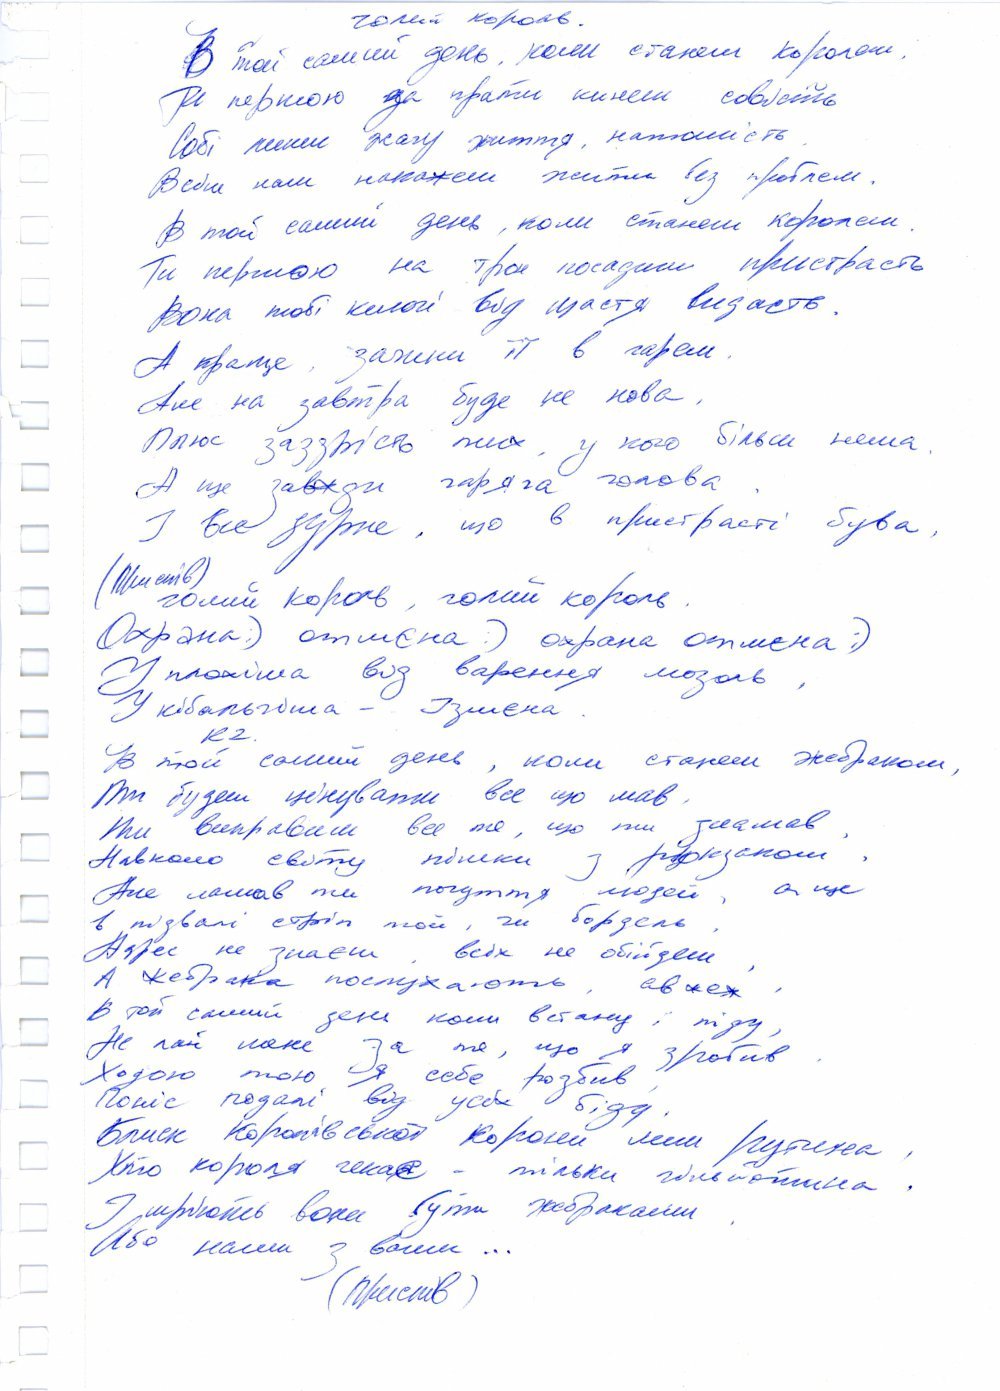 голий король.
В той самий день, коли станеш королем,
Ти першою за грати кинеш совість
Собі лиши жагу життя, натомість,
Всім нам накажеш жити без проблем.
В той самий день, коли станеш королем.
Ти першою на трон посадиш пристрасть
Вона тобі ключі від щастя видасть.
А краще, зачини її в гарем.
Але на завтра буде не нова,
Плюс заздрість тих, у кого більш нема.
А ще завжди гаряча голова.
І все дурне, що в пристрасті бува,
(Приспів)
голий король, голий король.
Охрана:) отмєна:) охрана отмєна:)
У плохіша від варення мозоль,
У кібальчіша - Ізмєна.
К2.
В той самий день, коли станеш жебраком,
Ти будеш цінувати все що мав.
Ти виправиш все те, що ти зламав,
Навколо світу пішки з рюкзаком.
Але ламав ти почуття людей, а ще
в підвалі стріп той, чи бордель,
Адрес не знаєш, всіх не обійдеш,
А жебрака послухають, авжеж,
В той самий день коли встану і піду,
Не лай мене за те, що я зробив.
Ходою тою я себе розбив,
Поніс подалі від усіх біду.
Блиск королівської корони лиш рутина,
Хто короля чекає - тільки гільйотина.
І мріють вони бути жебраками,
Або нами з вами...
(Приспів)